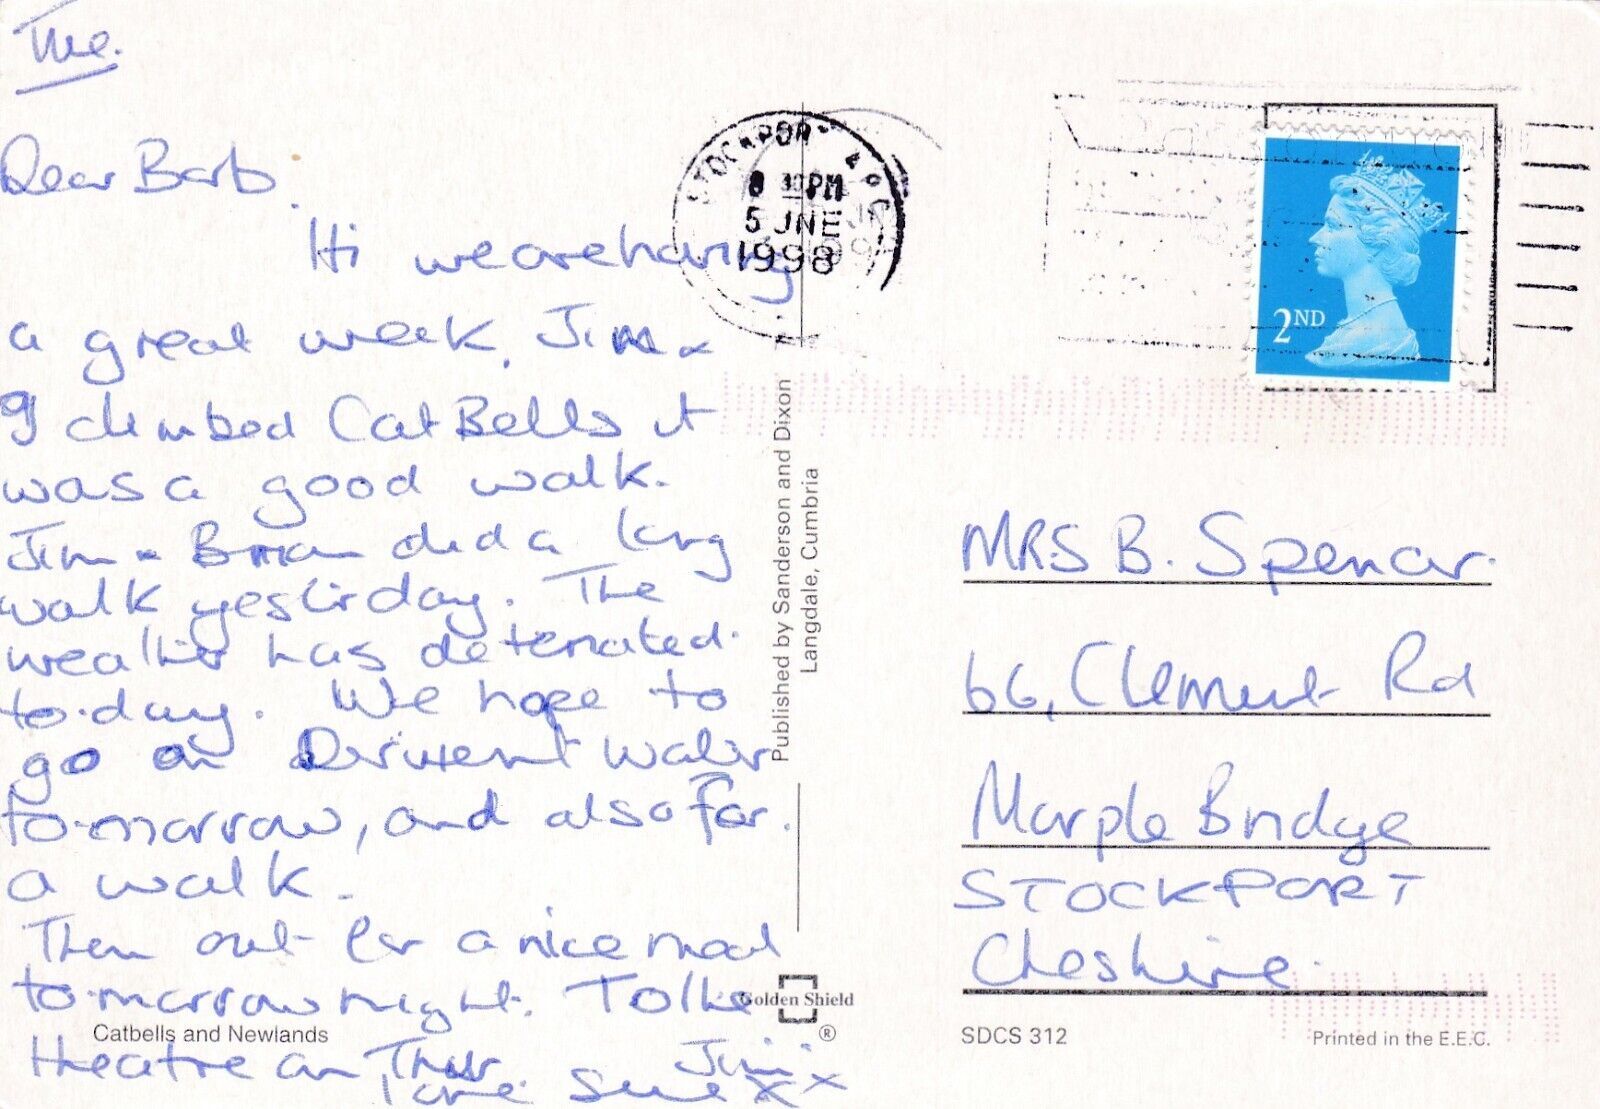 Tue.
Dear Barb,
Hi we are having
a great week, Jim &
I climbed Cat Bells it
was a good walk.
Jim & Brian did a long
walk yesterday. The
weather has deteriated
to-day. We hope to
go on Derwent Water
to-morrow, and also for
a walk.
Then out for a nice meal
to-morrow night. To the
theatre on Thur.
Love Sue Jim xxx
Catbells and Newlands
Published by Sanderson and Dixon
Langdale, Cumbria
Golden Shield
®
STOCKPORT
8 30PM
5 JNE
1998
2ND
MRS B. Spencer.
66, Clement Rd
Marple Bridge
STOCKPORT
Cheshire.
SDCS 312
Printed in the E.E.C.